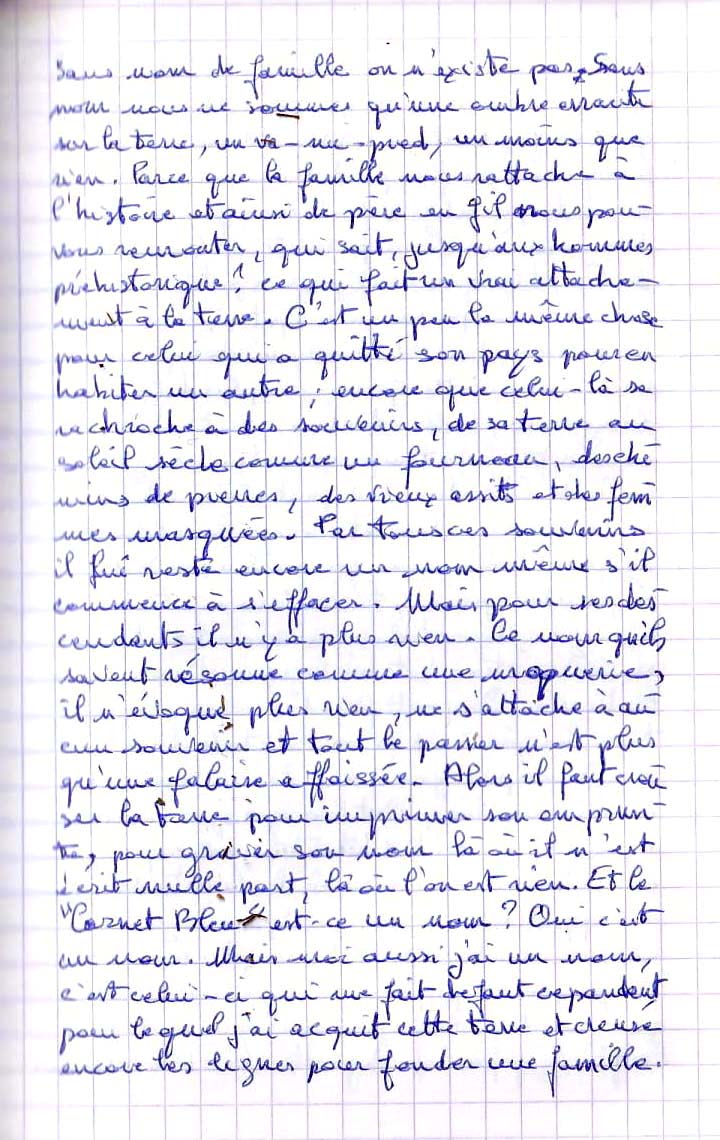 Sans nom de famille on n'existe pas, Sans
nom nous ne sommes qu'une ombre errante
sur la terre, un va-nu-pied, un moins que
rien. Parce que la famille nous rattache à
l'histoire et ainsi de père en fil nous pou-
vons remonter, qui sait, jusqu'aux hommes
préhistorique? ce qui fait un vrai attache-
ment à la terre. C'est un peu la même chose
pour celui qui a quitté son pays pour en
habiter un autre; encore que celui-là se
rachroche à des souvenirs, de sa terre au
soleil sècle comme un fourneau, des ché
mins de pierres, des vieux assits et des fem
mes masquées. Par tous ces souvenirs
il lui reste encore un nom même s'il
commence à s'effacer. Mais pour ses des
cendants il n'y a plus rien. Ce nom qu'ils
savent résonne comme une moquerie,
il n'évoque plus rien, ne s'attache à au
cun souvenir et tout le passer n'est plus
qu'une falaise affaissée. Alors il faut creu
ser la terre pour imprimer son emprun-
te, pour graver son nom là où il n'est
écrit nulle part, là où l'on est rien. Et le
"Carnet Bleu" est-ce un nom? Oui c'est
un nom. Mais moi aussi j'ai un nom,
c'est celui-ci qui me fait defaut cependent
pour lequel j'ai acquit cette terre et creusé
encore les lignes pour fonder une famille.